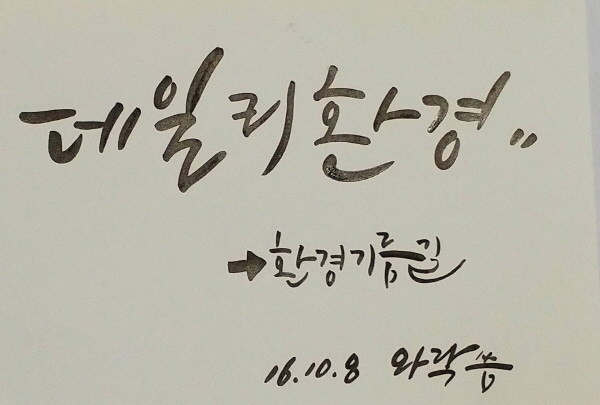 데일리환경"
→환경기름길
16.10.8 와락 씀